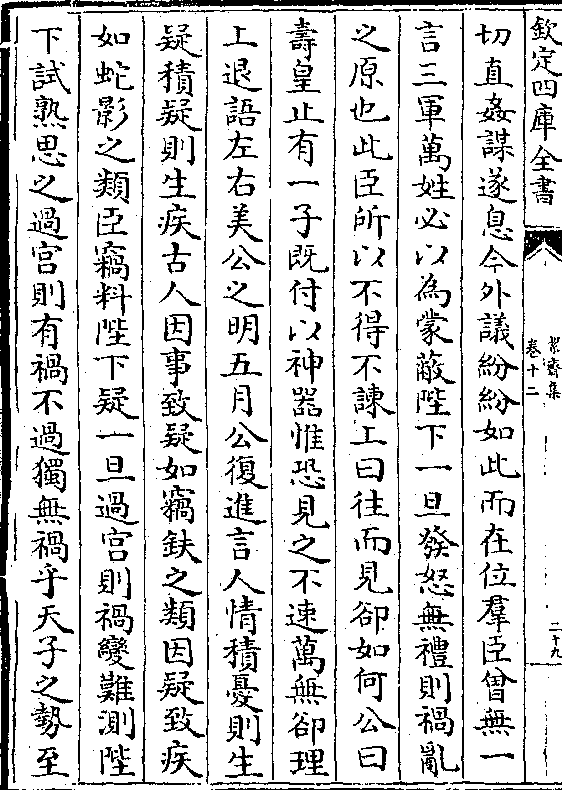 欽定四庫全書
絜齋集
卷十二
二十九
切直姦謀遂息今外議紛紛如此而在位羣臣曾無一
言三軍萬姓必以為蒙蔽陛下一旦發怒無禮則禍亂
之原也此臣所以不得不諫上曰往而見卻如何公曰
壽皇止有一子既付以神器惟恐見之不速萬無卻理
上退語左右美公之明五月公復進言人情積憂則生
疑積疑則生疾古人因事致疑如竊鈇之類因疑致疾
如蛇影之類臣竊料陛下疑一旦過宮則禍變難測陛
下試熟思之過宮則有禍不過獨無禍乎天子之勢至